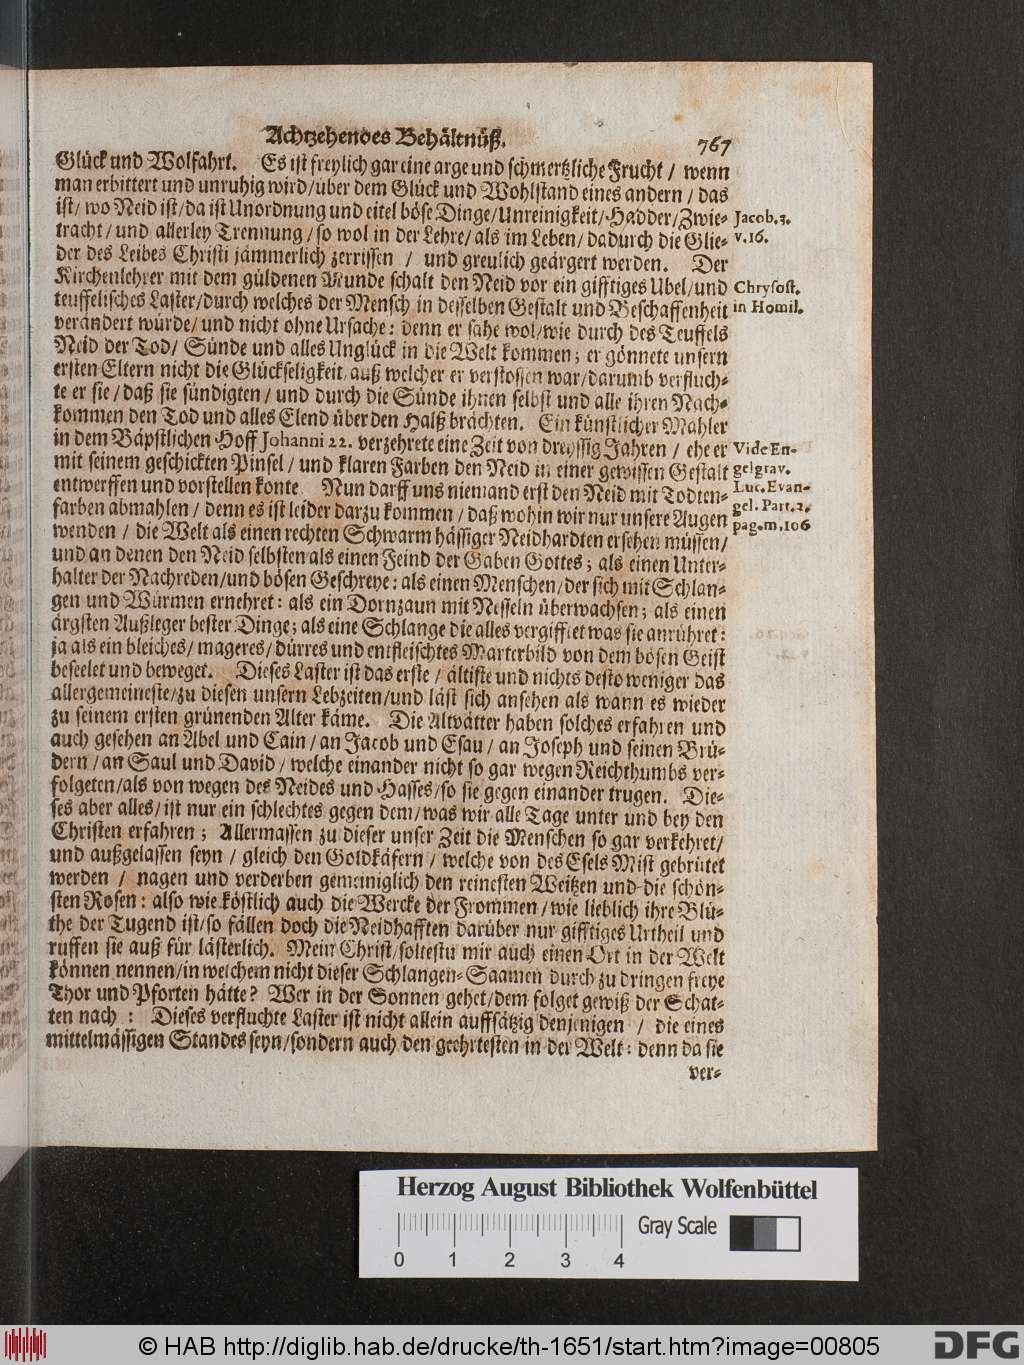 Achtzehendes Behältnüß.
767
Glück und Wolfahrt. Es ist freylich gar eine arge und schmertzliche Frucht / wenn
man erbittert und unruhig wird/über dem Glück und Wohlstand eines andern / das
ist/ wo Neid ist/da ist Unordnung und eitel böse Dinge/Unreinigkeit/Hadder/Zwie-
tracht/und allerley Trennung/so wol in der Lehre/als im Leben/dadurch die Glie-
der des Leibes Christi jämmerlich zerrissen / und greulich geärgert werden. Der
Kirchenlehrer mit dem güldenen Munde schalt den Neid vor ein gifftiges Ubel/und
teuffelisches Laster/durch welches der Mensch in desselben Gestalt und Beschaffenheit
verändert würde/und nicht ohne Ursache: denn er sahe wol/wie durch des Teuffels
Neid der Tod/ Sünde und alles Unglück in die Welt kommen; er gönnete unsern
ersten Eltern nicht die Glückseligkeit/auß welcher er verstossen war/darumb verfluch-
te er sie/daß sie sündigten/und durch die Sünde ihnen selbst und alle ihren Nach-
kommen den Tod und alles Elend über den Halß brächten. Ein künstlicher Mahler
in dem Bäpstlichen Hoff Johanni 22. verzehrete eine Zeit von dreyssig Jahren / ehe er
mit seinem geschickten Pinsel / und klaren Farben den Neid in einer gewissen Gestalt
entwerffen und vorstellen konte. Nun darff uns niemand erst den Neid mit Todten-
farben abmahlen / denn es ist leider darzu kommen / daß wohin wir nur unsere Augen
wenden / die Welt als einen rechten Schwarm hässiger Neidhardten ersehen müssen/
und an denen den Neid selbsten als einen Feind der Gaben Gottes; als einen Unter-
halter der Nachreden/und bösen Geschreye: als einen Menschen/der sich mit Schlan-
gen und Würmen ernehret: als ein Dornzaun mit Nesseln überwachsen; als einen
ärgsten Außleger bester Dinge; als eine Schlange die alles vergifftet was sie anrühret:
ja als ein bleiches/ mageres/ dürres und entfleischtes Marterbild von dem bösen Geist
beseelet und beweget. Dieses Laster ist das erste / ältiste und nichts desto weniger das
allergemeineste/zu diesen unsern Lebzeiten/und läst sich ansehen als wann es wieder
zu seinem ersten grünenden Alter käme. Die Altvätter haben solches erfahren und
auch gesehen an Abel und Cain/an Jacob und Esau/an Joseph und seinen Brü-
dern/an Saul und David/welche einander nicht so gar wegen Reichthumbs ver-
folgeten/als von wegen des Neides und Hasses/so sie gegen einander trugen. Die-
ses aber alles/ist nur ein schlechtes gegen dem/was wir alle Tage unter und bey den
Christen erfahren; Allermassen zu dieser unser Zeit die Menschen so gar verkehret/
und außgelassen seyn / gleich den Goldkäfern / welche von des Esels Mist gebrütet
werden / nagen und verderben gemeiniglich den reinesten Weitzen und die schön-
sten Rosen: also wie köstlich auch die Wercke der Frommen/wie lieblich ihre Blü-
the der Tugend ist/so fällen doch die Neidhafften darüber nur gifftiges Urtheil und
ruffen sie auß für lästerlich. Mein Christ/soltestu mir auch einen Ort in der Welt
können nennen/in welchem nicht dieser Schlangen-Saamen durch zu dringen freye
Thor und Pforten hätte? Wer in der Sonnen gehet/dem folget gewiß der Schat-
ten nach : Dieses verfluchte Laster ist nicht allein auffsätzig denjenigen / die eines
mittelmässigen Standes seyn/sondern auch den geehrtesten in der Welt: denn da sie
ver-
Jacob. 3.
v. 16.
Chrysost.
in Homil.
Vide En-
gelgrav.
Luc. Evan-
gel. Part. 2.
pag. m. 106
Herzog August Bibliothek Wolfenbüttel
Gray Scale
0 1 2 3 4
© HAB http://diglib.hab.de/drucke/th-1651/start.htm?image=00805
DFG